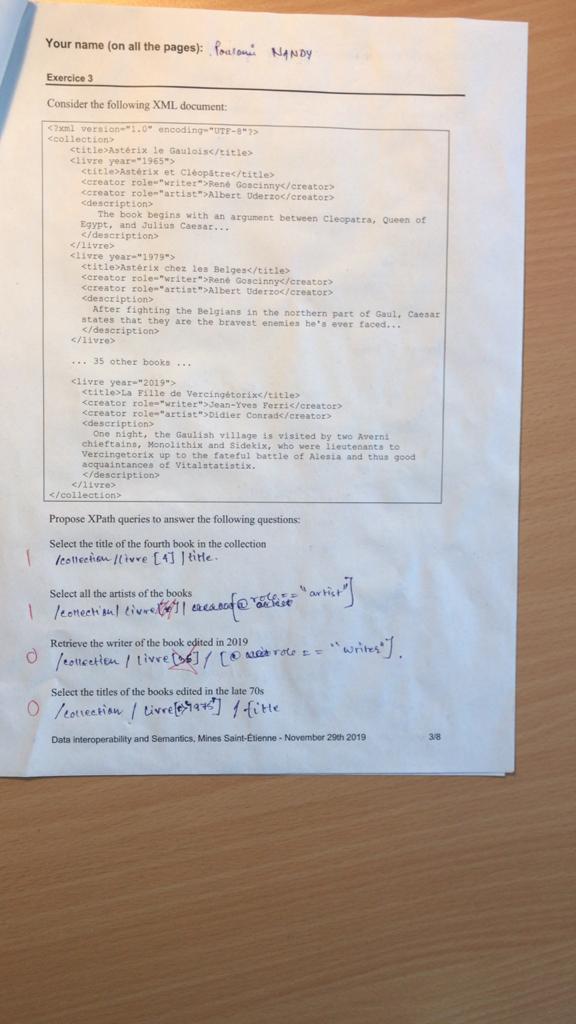 Your name (on all the pages): Poulomi NANDY
Exercice 3
Consider the following XML document:
<?xml version="1.0" encoding="UTF-8"?>
<collection>
<title>Astérix le Gaulois</title>
<livre year="1965">
<title>Astérix et Cléopâtre</title>
<creator role="writer">René Goscinny</creator>
<creator role="artist">Albert Uderzo</creator>
<description>
The book begins with an argument between Cleopatra, Queen of
Egypt, and Julius Caesar...
</description>
</livre>
<livre year="1979">
<title>Astérix chez les Belges</title>
<creator role="writer">René Goscinny</creator>
<creator role="artist">Albert Uderzo</creator>
<description>
After fighting the Belgians in the northern part of Gaul, Caesar
states that they are the bravest enemies he's ever faced...
</description>
</livre>
... 35 other books ...
<livre year="2019">
<title>La Fille de Vercingétorix</title>
<creator role="writer">Jean-Yves Ferri</creator>
<creator role="artist">Didier Conrad</creator>
<description>
One night, the Gaulish village is visited by two Averni
chieftains, Monolithix and Sidekix, who were lieutenants to
Vercingetorix up to the fateful battle of Alesia and thus good
acquaintances of Vitalstatistix.
</description>
</livre>
</collection>
Propose XPath queries to answer the following questions:
Select the title of the fourth book in the collection
1 /collection/livre [4] /title.
Select all the artists of the books
1 /collection/ livre / [@ role == "artist"]
Retrieve the writer of the book edited in 2019
0 /collection / livre [36] / [@ role == "writer"].
Select the titles of the books edited in the late 70s
0 /collection / livre / title
Data interoperability and Semantics, Mines Saint-Étienne - November 29th 2019 3/8